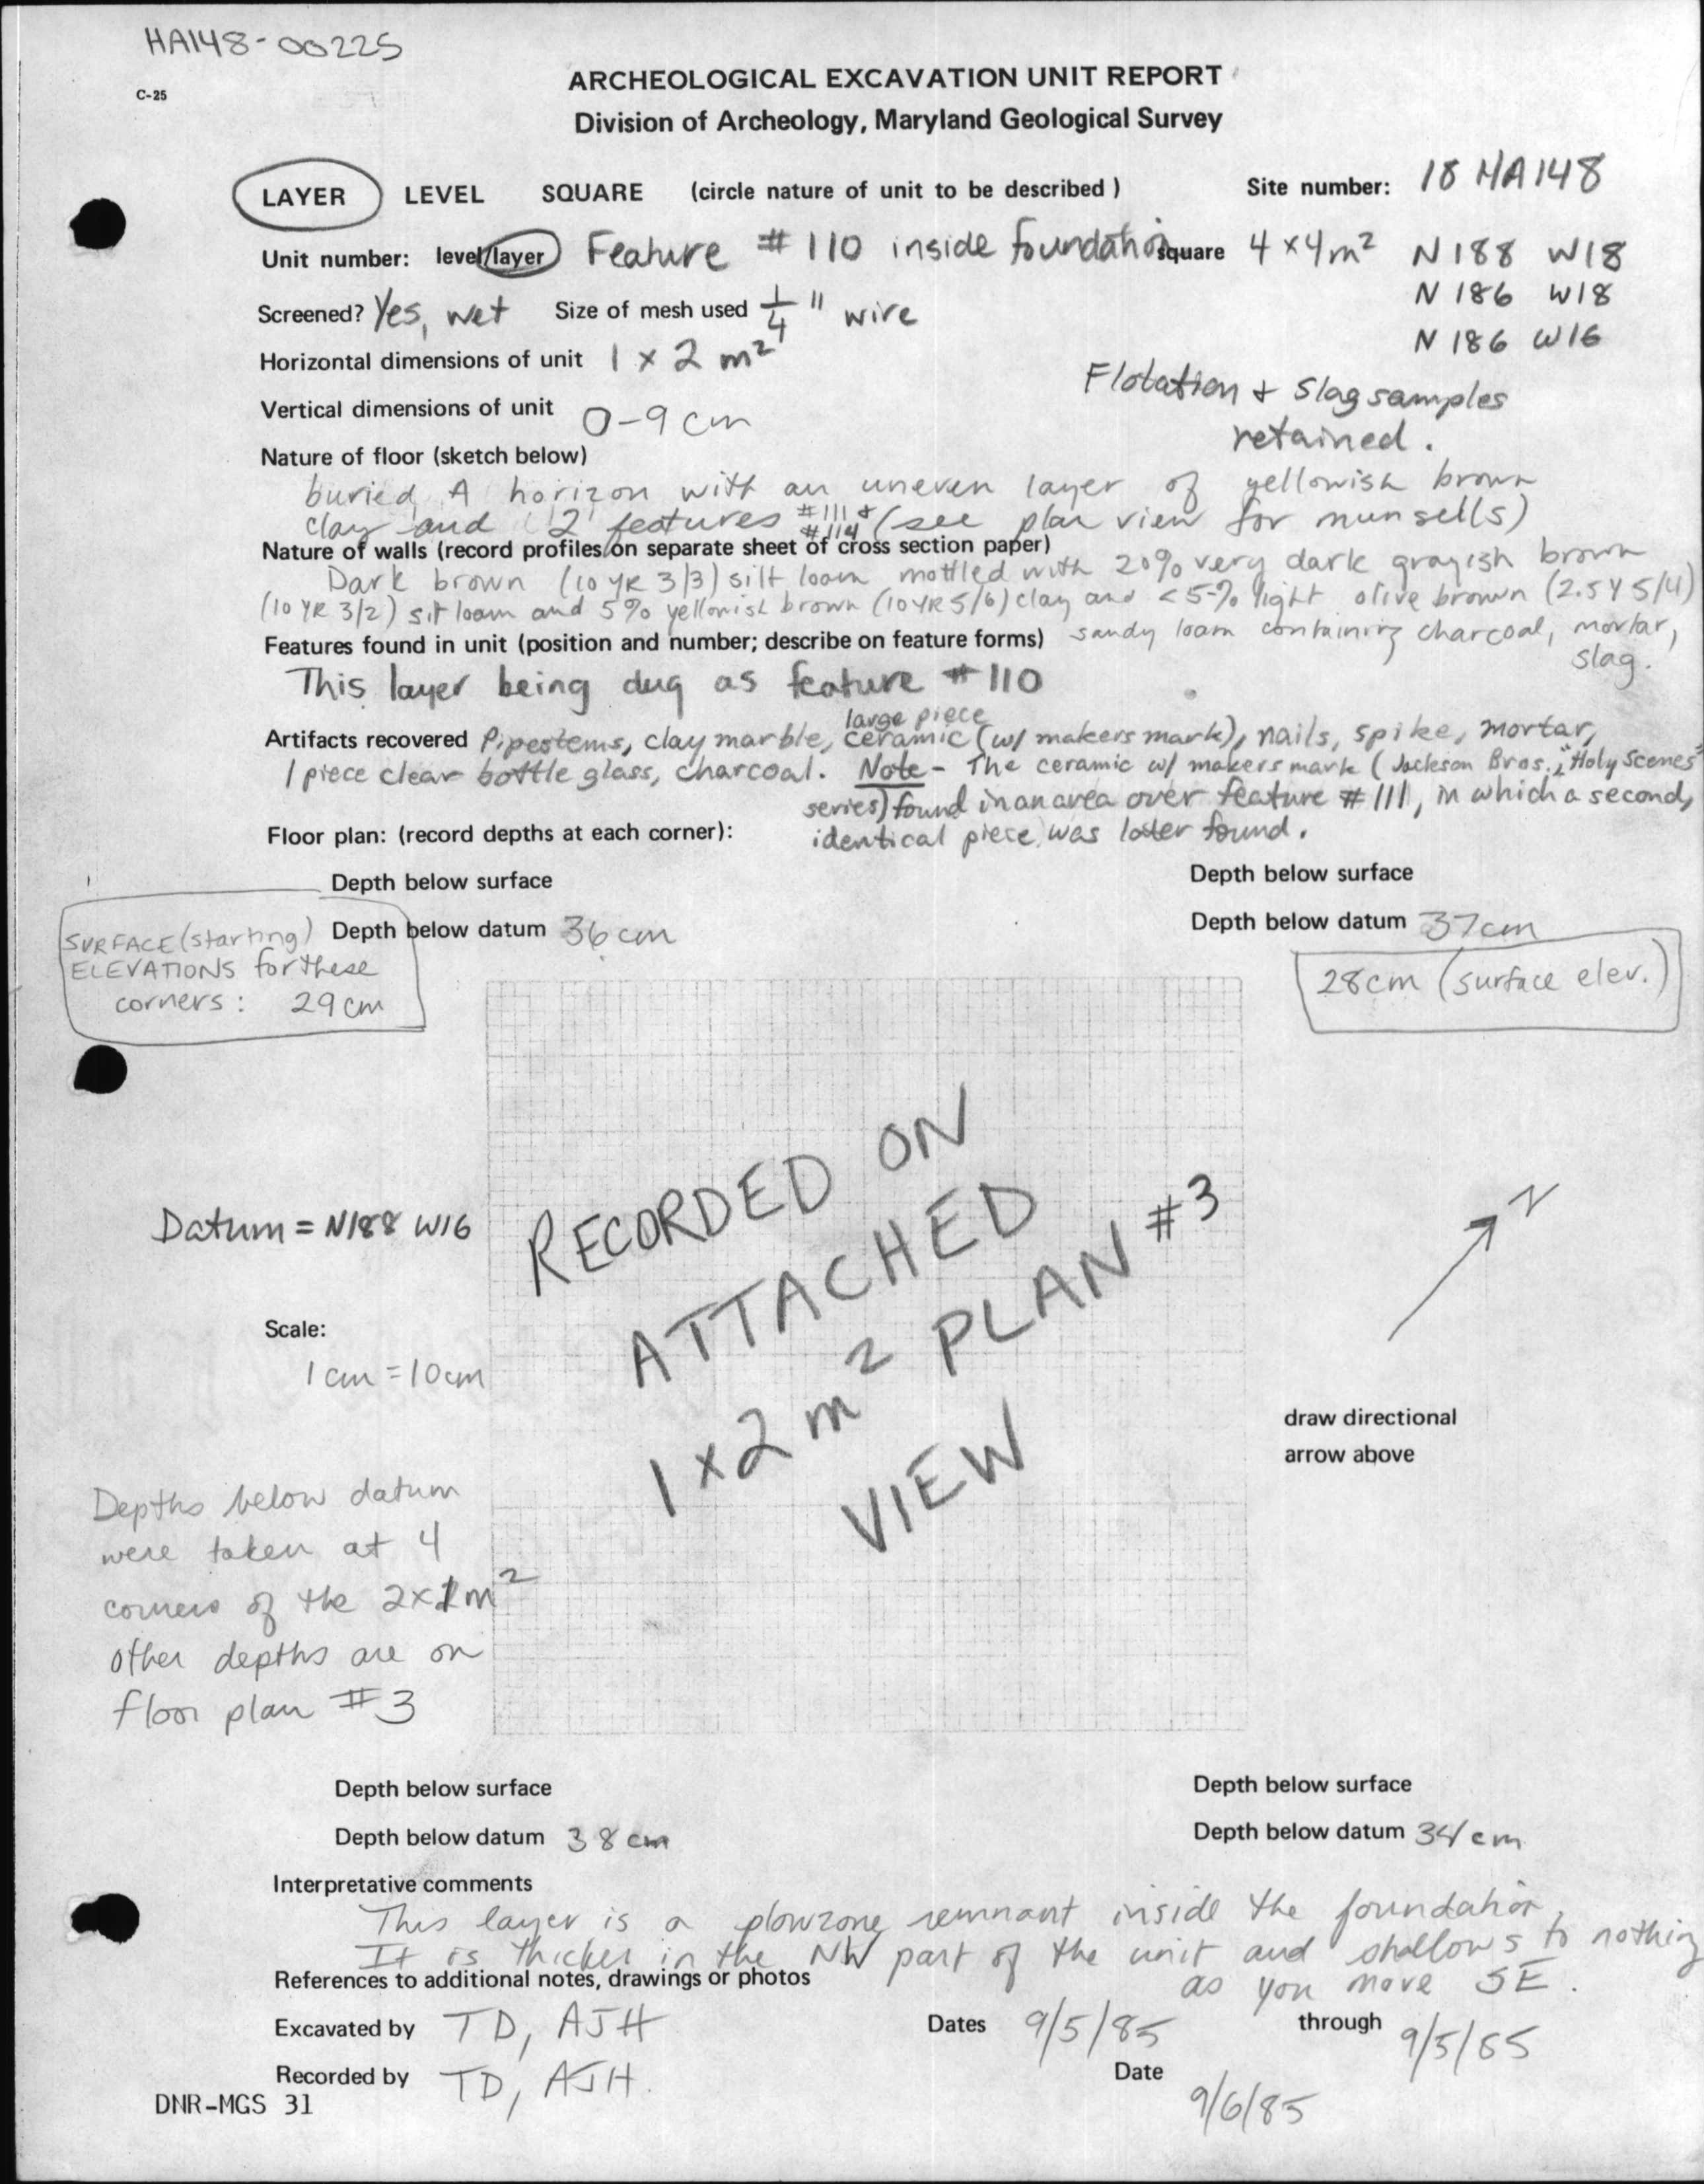 HA148-00225
C-25
ARCHEOLOGICAL EXCAVATION UNIT REPORT
Division of Archeology, Maryland Geological Survey
LAYER LEVEL SQUARE (circle nature of unit to be described ) Site number: 18 HA148
Unit number: level/layer Feature # 110 inside foundation square 4 x 4m² N 188 W18
N 186 W18
Screened? Yes, wet Size of mesh used 1/4" wire
N 186 W16
Horizontal dimensions of unit 1 x 2 m²
Flotation + Slag samples
Vertical dimensions of unit 0-9 cm
retained.
Nature of floor (sketch below)
buried A horizon with an uneven layer of yellowish brown
clay and 2 features #111 + #114 (see plan view for munsells)
Nature of walls (record profiles on separate sheet of cross section paper)
Dark brown (10 YR 3/3) silt loam mottled with 20% very dark grayish brown
(10 YR 3/2) silt loam and 5% yellowish brown (10YR 5/6) clay and <5% light olive brown (2.5Y 5/4)
Features found in unit (position and number; describe on feature forms) sandy loam containing charcoal, mortar,
slag.
This layer being dug as feature # 110
large piece
Artifacts recovered Pipestems, clay marble, ceramic (w/ makers mark), nails, spike, mortar,
1 piece clear bottle glass, charcoal. Note - The ceramic w/ makers mark (Jackson Bros., "Holy Scenes"
series) found in an area over feature # 111, in which a second,
Floor plan: (record depths at each corner): identical piece was later found.
Depth below surface Depth below surface
SURFACE (starting) Depth below datum 36 cm Depth below datum 37cm
ELEVATIONS for these
corners: 29 cm
28cm (surface elev.)
RECORDED ON
ATTACHED
1 x 2 m² PLAN #3
VIEW
Datum = N188 W16
N
Scale:
1 cm = 10 cm
draw directional
arrow above
Depths below datum
were taken at 4
corners of the 2x1m²
other depths are on
floor plan #3
Depth below surface Depth below surface
Depth below datum 38 cm Depth below datum 34 cm
Interpretative comments
This layer is a plowzone remnant inside the foundation.
It is thicker in the NW part of the unit and shallows to nothing
References to additional notes, drawings or photos as you move SE.
Excavated by TD, AJH Dates 9/5/85 through 9/5/85
Recorded by TD, AJH. Date 9/6/85
DNR-MGS 31